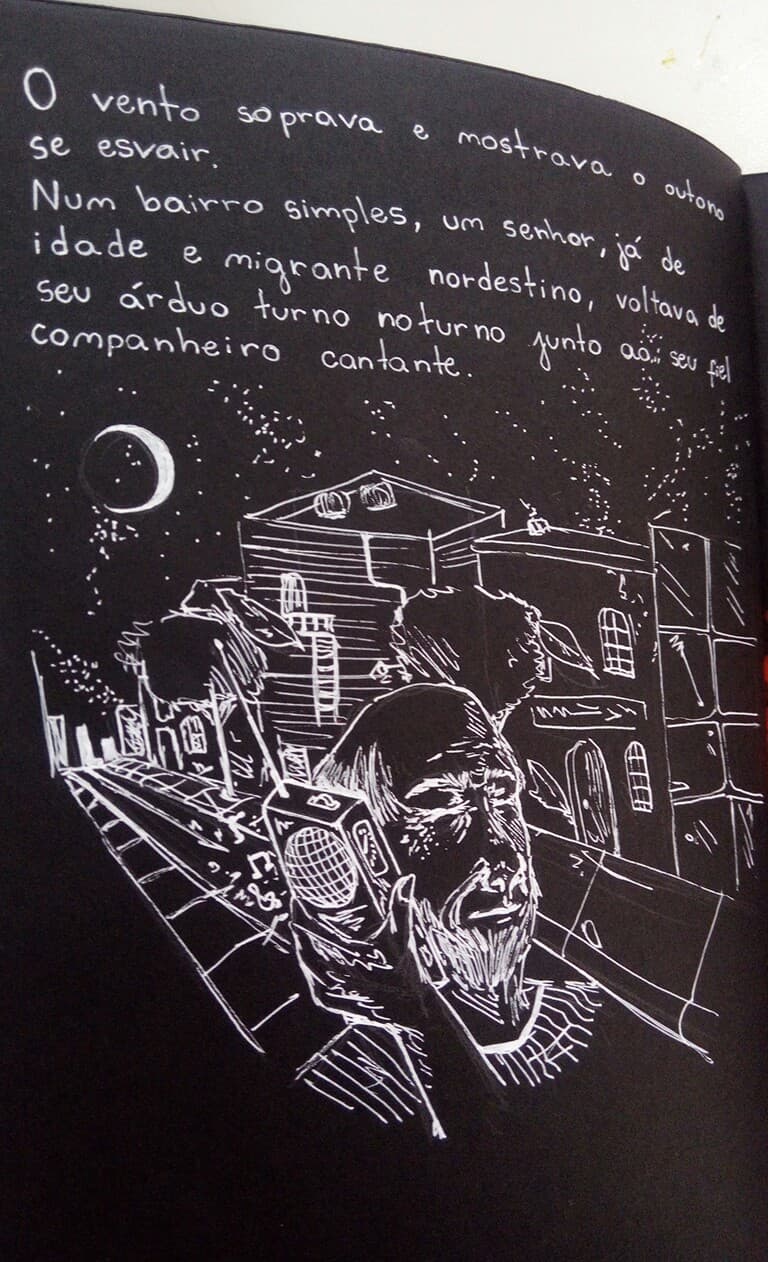 O vento soprava e mostrava o outono
se esvair.
Num bairro simples, um senhor, já de
idade e migrante nordestino, voltava de
seu árduo turno noturno junto ao seu fiel
companheiro cantante.